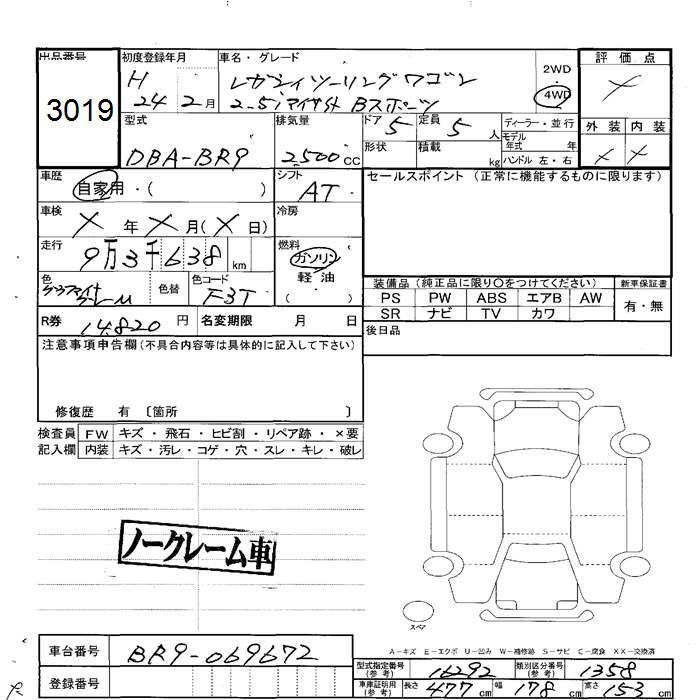 出品番号 初度登録年月 車名・グレード 評価点
3019 H 24 2月 レガシィツーリングワゴン 2WD
2.5i アイサイト Bスポーツ 4WD ×
型式 排気量 ドア 5 定員 5人 ディーラー・並行 外装 内装
DBA-BR9 2,500cc 形状 積載 kg モデル年式 年 × ×
ハンドル 左・右
車歴 自家用・( ) シフト AT セールスポイント (正常に機能するものに限ります)
車検 × 年 × 月(× 日) 冷房
走行 9万3千638km 燃料 ガソリン
軽油・( )
色 色替 色コード F3T
装備品 (純正品に限り〇をつけてください) 新車保証書
PS PW ABS エアB AW 有・無
SR ナビ TV カワ
R券 14,820円 名変期限 月 日 後日品
注意事項申告欄(不具合内容等は具体的に記入して下さい)
修復歴 有 〔箇所 〕
検査員 FW キズ・飛石・ヒビ割・リペア跡・×要
記入欄 内装 キズ・汚レ・コゲ・穴・スレ・キレ・破レ
ノークレーム車
スペア
A-キズ E-エクボ U-凹み W-補修跡 S-サビ C-腐食 XX-交換済
車台番号 BR9-069672
登録番号
型式指定番号(参考) 16292 類別区分番号(参考) 1358
車庫証明用(参考) 長さ 477cm 幅 178cm 高さ 153cm